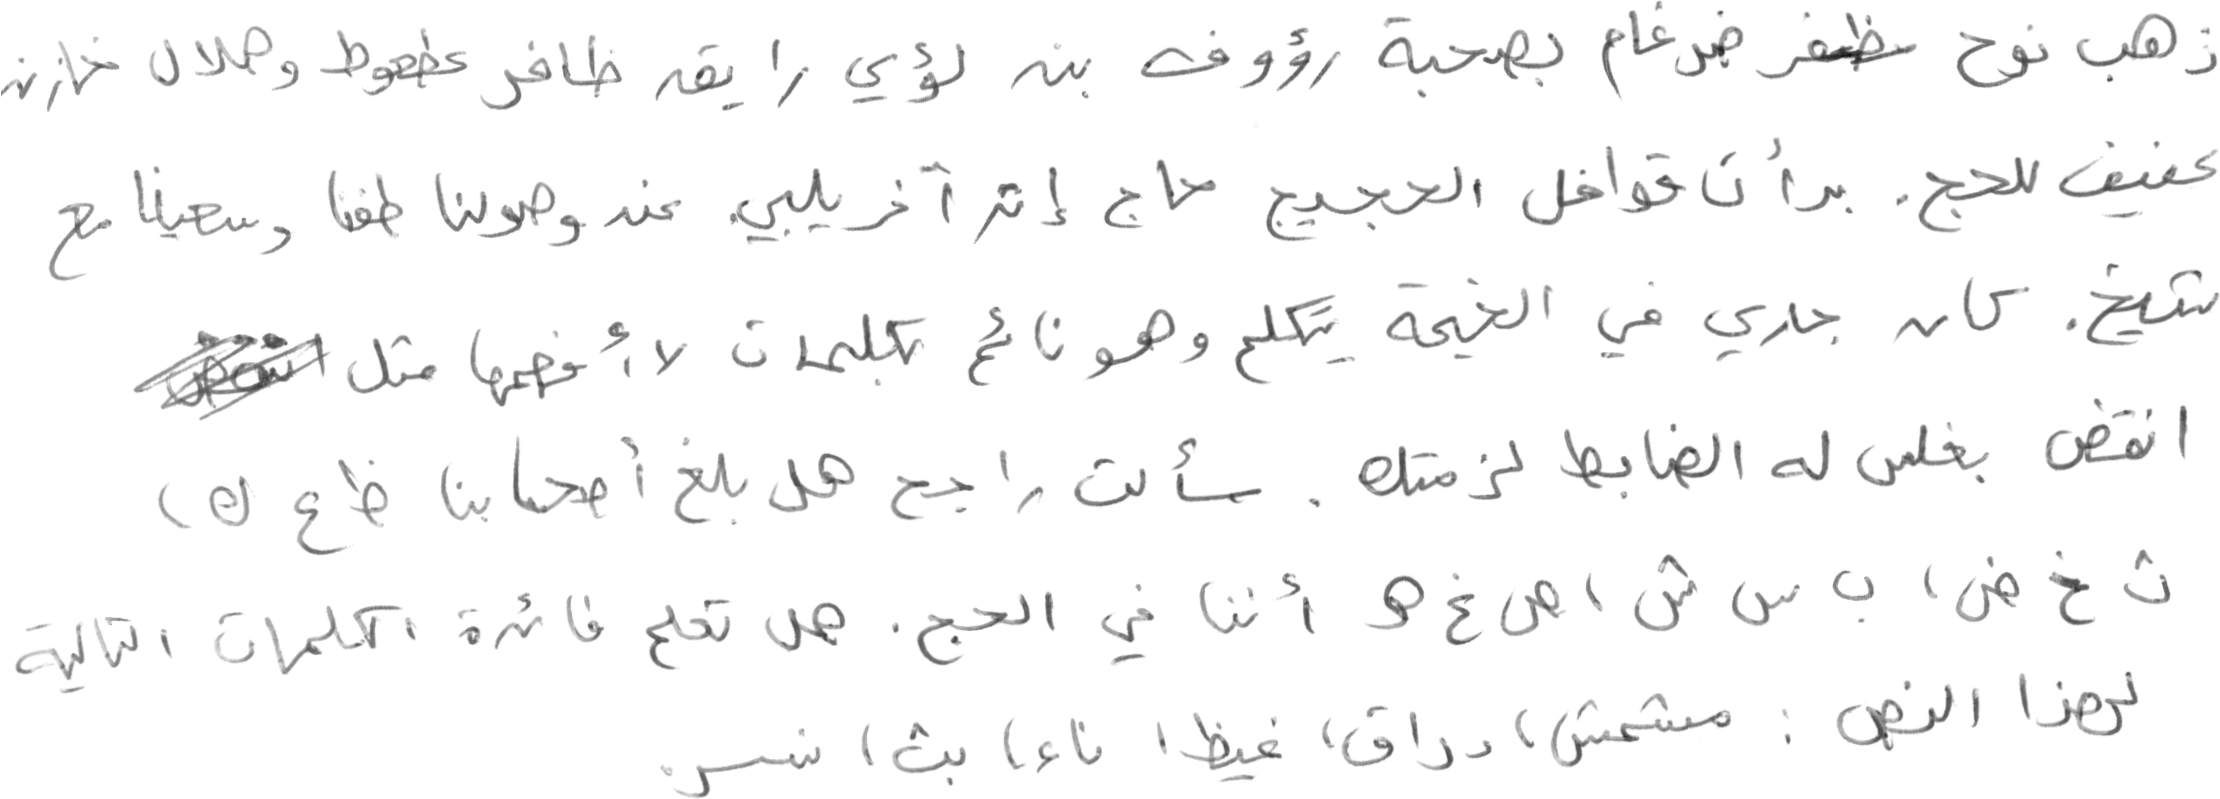 ذهب نوح مظفر ضرغام بصحبة رؤوف بن لؤي رايق ظافر عطعوط وهلال خازن
عفيف للحج. بدأت قوافل الحجيج حاج إثر آخر يلبي. عند وصولنا طفنا وسعينا مع
شيخ. كان جاري في الخيمة يتكلم وهو نائم بكلمات لا أفهمها مثل
انقض بغلس له الضابط لزمتك. سألت راجح هل بلغ أصحابنا ظ ع ك،
ث خ ض، ب س ش، ص غ ه أننا في الحج. هل تعلم فائدة الكلمات التالية
لهذا النص: مشمش، دراق، غيظ، ناء، بث، نسر.